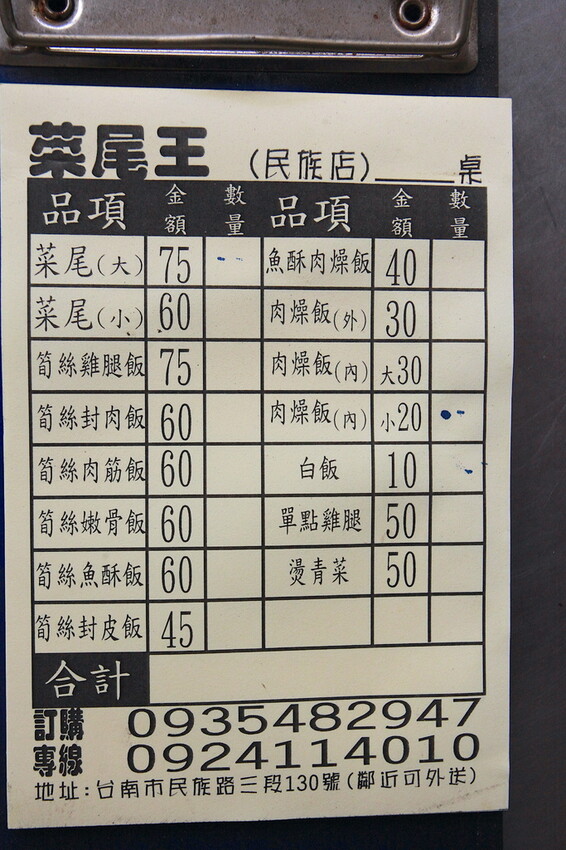 菜尾王 (民族店)_____桌
品項 金額 數量 品項 金額 數量
菜尾(大) 75 魚酥肉燥飯 40
菜尾(小) 60 肉燥飯(外) 30
筍絲雞腿飯 75 肉燥飯(內) 大30
筍絲封肉飯 60 肉燥飯(內) 小20
筍絲肉筋飯 60 白飯 10
筍絲嫩骨飯 60 單點雞腿 50
筍絲魚酥飯 60 燙青菜 50
筍絲封皮飯 45
合計
訂購專線 0935482947
0924114010
地址:台南市民族路三段130號(鄰近可外送)